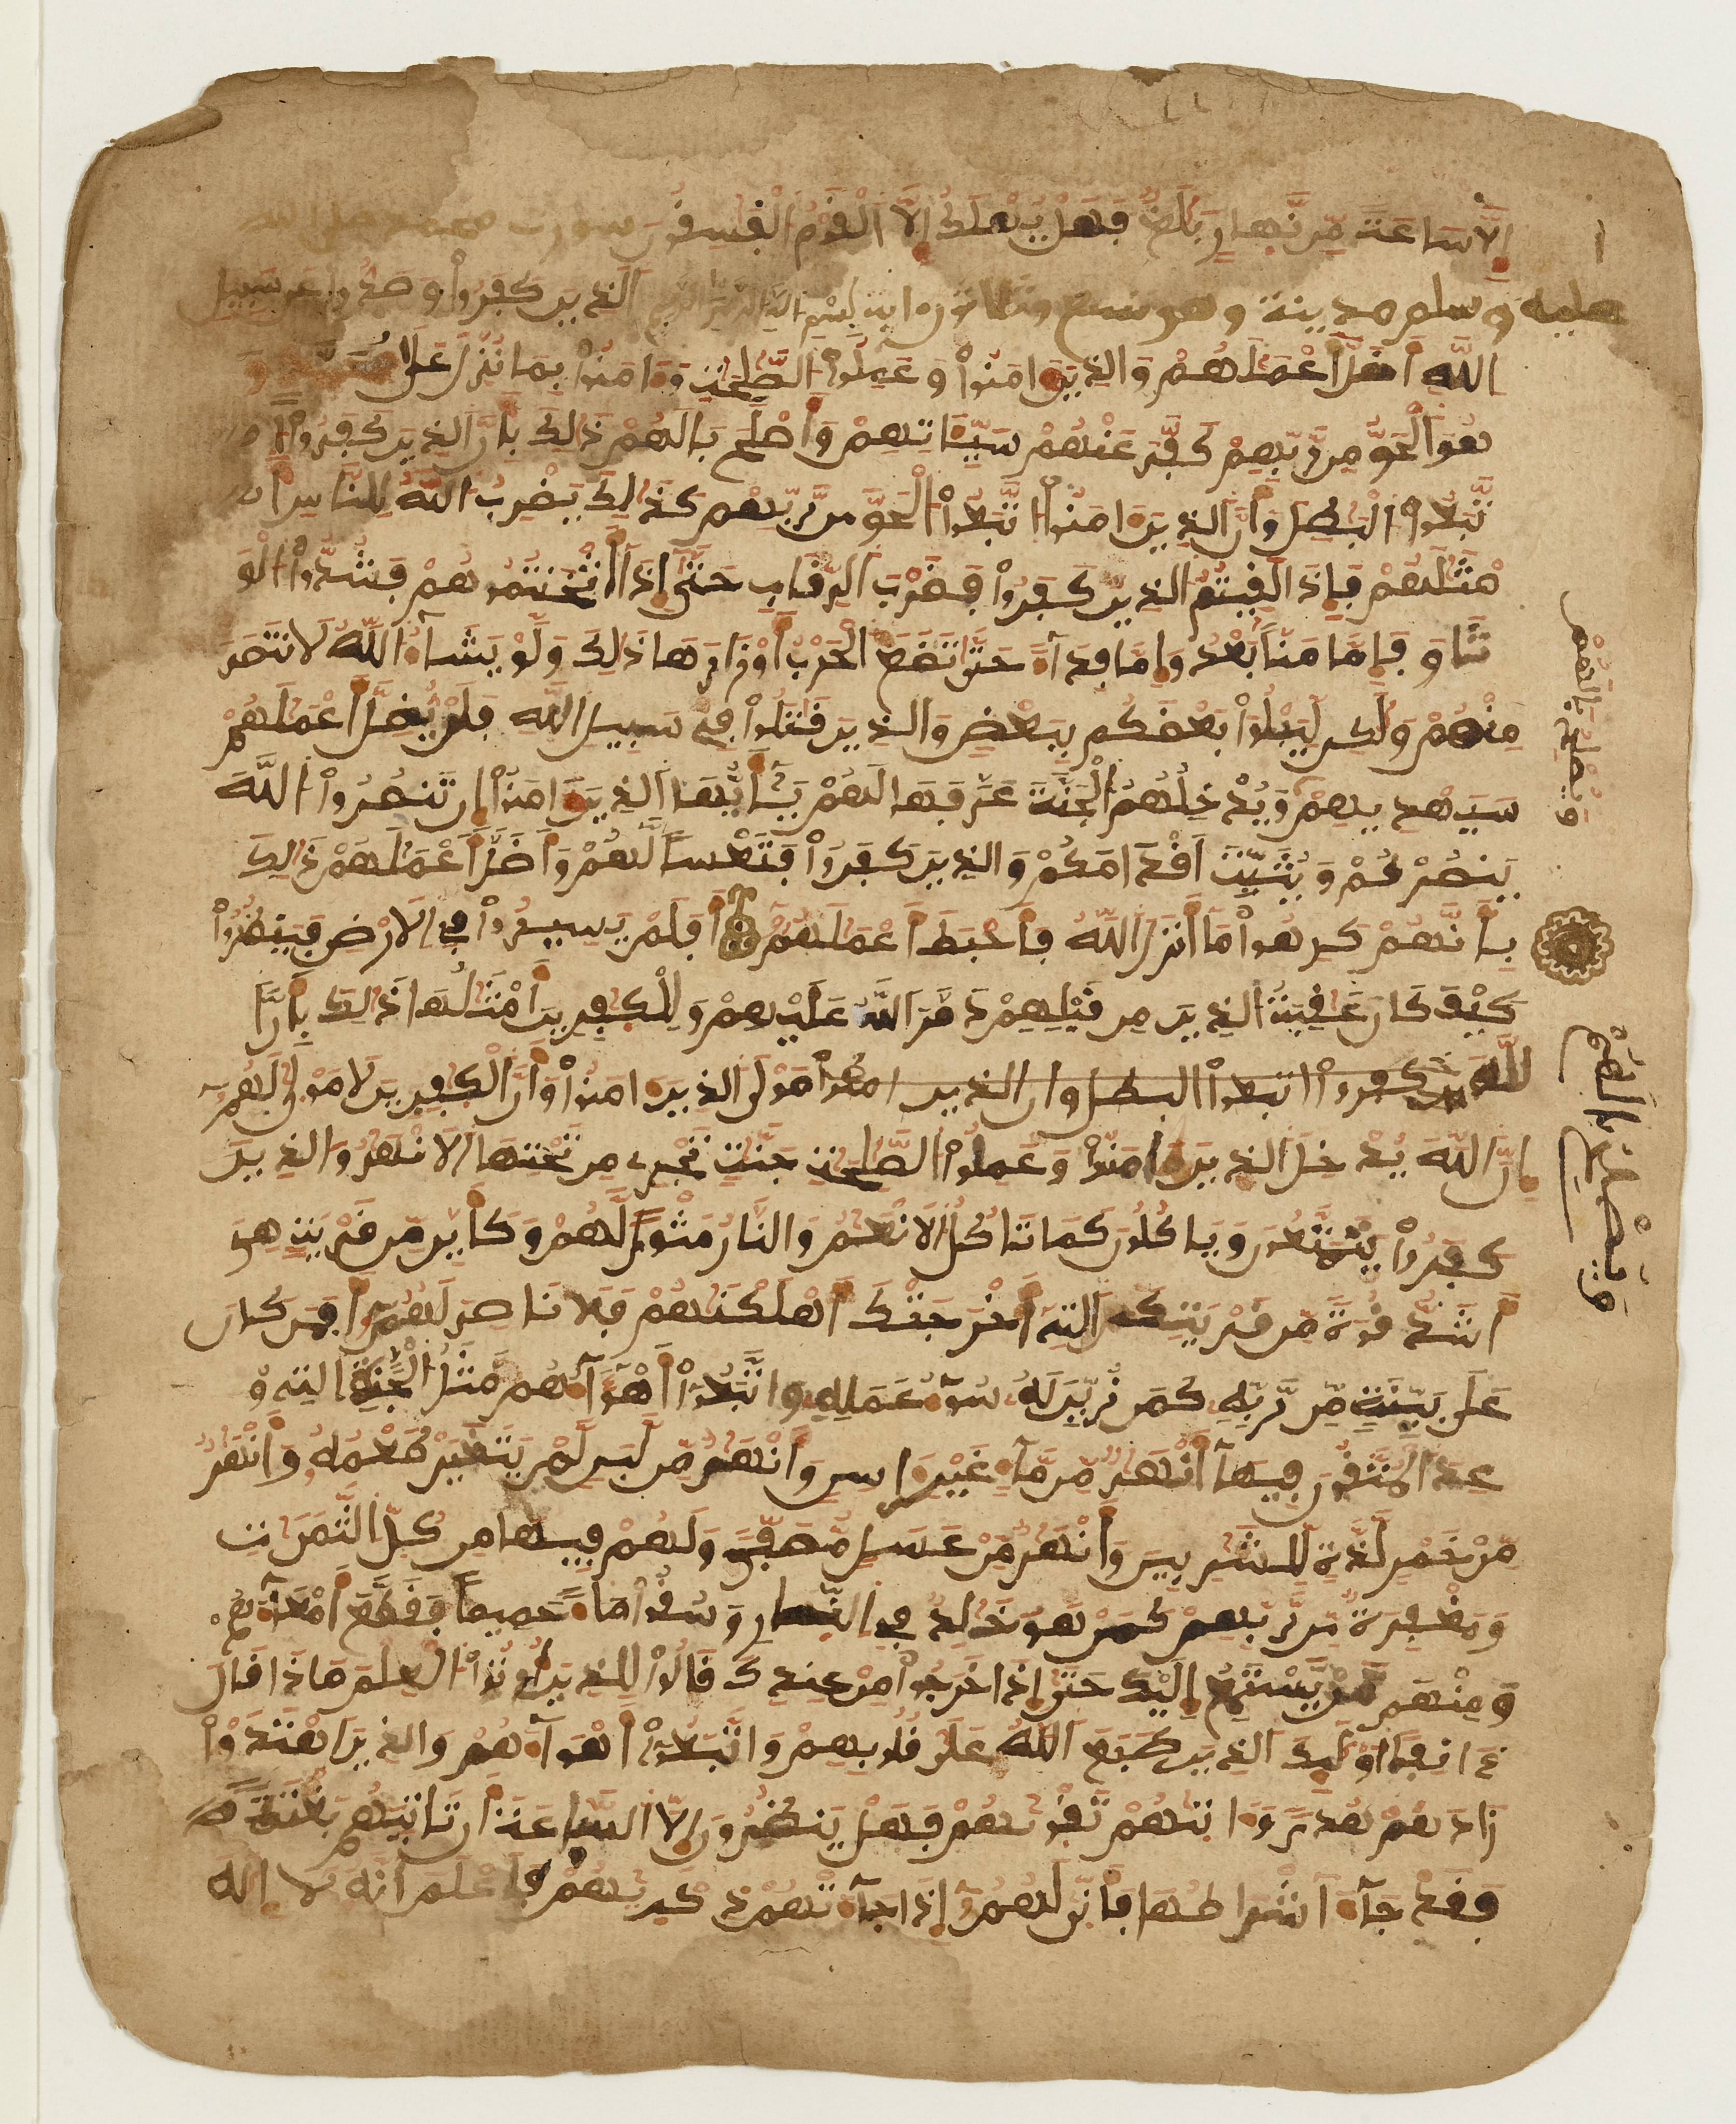 إِلَّا سَاعَةً مِّن نَّهَارٍ بَلَٰغٌ فَهَلْ يُهْلَكُ إِلَّا اَلْقَوْمُ اَلْفَٰسِقُونَ سورت محمد صل الله
عليه وسلم مدينة وهو تسع وثلاثون ءاية بسم الله الرحمن الرحيم اَلذِينَ كَفَرُواْ وَصَدُّواْ عَن سَبِيلِ
اِللَّهِ أَضَلَّ أَعْمَٰلَهُمْ وَالذِينَ ءَامَنُواْ وَعَمِلُواْ الصَّٰلِحَٰتِ وَءَامَنُواْ بِمَا نُزِّلَ عَلَىٰ مُحَمَّدٍ وَ
هُوَ اَلْحَقُّ مِن رَّبِّهِمْ كَفَّرَ عَنْهُمْ سَيِّـَٔاتِهِمْ وَأَصْلَحَ بَالَهُمْ ذَٰلِكَ بِأَنَّ اَلذِينَ كَفَرُواْ اُ
تَّبَعُواْ اُلْبَٰطِلَ وَأَنَّ الذِينَ ءَامَنُواْ اُتَّبَعُواْ اُلْحَقَّ مِن رَّبِّهِمْ كَذَٰلِكَ يَضْرِبُ اللَّهُ لِلنَّاسِ أَ
مْثَٰلَهُمْ فَإِذَا لَقِيتُمُ الذِينَ كَفَرُواْ فَضَرْبَ اَلرِّقَابِ حَتَّىٰ إِذَا أَثْخَنتُمُوهُمْ فَشُدُّواْ اُلْوَ
ثَاقَ فَإِمَّا مَنّاً بَعْدُ وَإِمَّا فِدَآءً حَتَّىٰ تَضَعَ اَلْحَرْبُ أَوْزَارَهَا ذَٰلِكَ وَلَوْ يَشَآءُ اُللَّهُ لَانتَصَرَ
مِنْهُمْ وَلَٰكِن لِّيَبْلُوَاْ بَعْضَكُم بِبَعْضٍ وَالذِينَ قَٰتَلُواْ فِي سَبِيلِ اِللَّهِ فَلَنْ يُضِلَّ أَعْمَٰلَهُمْ
سَيَهْدِيهِمْ وَيُدْخِلُهُمُ اُلْجَنَّةَ عَرَّفَهَا لَهُمْ يَٰٓأَيُّهَا اَلذِينَ ءَامَنُواْ إِن تَنصُرُواْ اُللَّهَ
يَنصُرْكُمْ وَيُثَبِّتَ اَقْدَامَكُمْ وَالذِينَ كَفَرُواْ فَتَعْساً لَّهُمْ وَأَضَلَّ أَعْمَٰلَهُمْ ذَٰلِكَ
بِأَنَّهُمْ كَرِهُواْ مَا أَنزَلَ اَللَّهُ فَأَحْبَطَ أَعْمَٰلَهُمْ أَفَلَمْ يَسِيرُواْ فِي اِلَارْضِ فَيَنظُرُواْ
كَيْفَ كَانَ عَٰقِبَةُ الذِينَ مِن قَبْلِهِمْ دَمَّرَ اَللَّهُ عَلَيْهِمْ وَلِلْكَٰفِرِينَ أَمْثَٰلُهَا ذَٰلِكَ بِأَنَّ اَ
للَّهَ ين كفروا اتبعوا البطل وان الذين امنوا مَوْلَى الذِينَ ءَامَنُواْ وَأَنَّ اَلْكَٰفِرِينَ لَا مَوْلَىٰ لَهُمْ
إِنَّ اَللَّهَ يُدْخِلُ الذِينَ ءَامَنُواْ وَعَمِلُواْ الصَّٰلِحَٰتِ جَنَّٰتٍ تَجْرِي مِن تَحْتِهَا اَلَانْهَٰرُ وَالذِينَ
كَفَرُواْ يَتَمَتَّعُونَ وَيَاكُلُونَ كَمَا تَاكُلُ اُلَانْعَٰمُ وَالنَّارُ مَثْوىً لَّهُمْ وَكَأَيِّن مِّن قَرْيَةٍ هِيَ
أَشَدُّ قُوَّةً مِّن قَرْيَتِكَ اَلتِي أَخْرَجَتْكَ أَهْلَكْنَٰهُمْ فَلَا نَاصِرَ لَهُمْ أَفَمَن كَانَ
عَلَىٰ بَيِّنَةٍ مِّن رَّبِّهِ كَمَن زُيِّنَ لَهُ سُوٓءُ عَمَلِهِ وَاتَّبَعُواْ أَهْوَآءَهُم مَّثَلُ اُلْجَنَّةِ اِلتِي وُ
عِدَ اَلْمُتَّقُونَ فِيهَآ أَنْهَٰرٌ مِّن مَّآءٍ غَيْرِ ءَاسِنٍ وَأَنْهَٰرٌ مِّن لَّبَنٍ لَّمْ يَتَغَيَّرْ طَعْمُهُ وَأَنْهَٰرٌ
مِّنْ خَمْرٍ لَّذَّةٍ لِّلشَّٰرِبِينَ وَأَنْهَٰرٌ مِّنْ عَسَلٍ مُّصَفّىً وَلَهُمْ فِيهَا مِن كُلِّ اِلثَّمَرَٰتِ
وَمَغْفِرَةٌ مِّن رَّبِّهِمْ كَمَنْ هُوَ خَٰلِدٌ فِي اِلنَّارِ وَسُقُواْ مَآءً حَمِيماً فَقَطَّعَ أَمْعَآءَهُمْ
وَمِنْهُم مَّنْ يَّسْتَمِعُ إِلَيْكَ حَتَّىٰ إِذَا خَرَجُواْ مِنْ عِندِكَ قَالُواْ لِلذِينَ أُوتُواْ اُلْعِلْمَ مَاذَا قَالَ
ءَانِفاً أُوْلَٰٓئِكَ اَلذِينَ طَبَعَ اَللَّهُ عَلَىٰ قُلُوبِهِمْ وَاتَّبَعُواْ أَهْوَآءَهُمْ وَالذِينَ اَهْتَدَوْاْ
زَادَهُمْ هُدىً وَءَاتَٰهُمْ تَقْوَٰهُمْ فَهَلْ يَنظُرُونَ إِلَّا اَلسَّاعَةَ أَن تَاتِيَهُم بَغْتَةً
فَقَدْ جَآءَ اَشْرَاطُهَا فَأَنَّىٰ لَهُمْ إِذَا جَآءَتْهُمْ ذِكْرَٰهُمْ فَاعْلَمَ اَنَّهُ لَا إِلَٰهَ
وَيُصْلِحُ بَالَهُمْ
وَيُصْلِحُ بَالَهُمْ